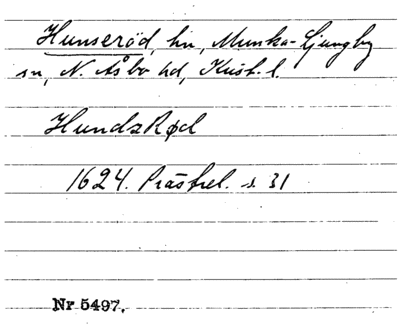 Hunseröd, hn, Munka-Ljungby
sn, N. Åsbo hd, Krist. l.
HundzRød
1624. Prästrel. s. 31
Nr 5497.